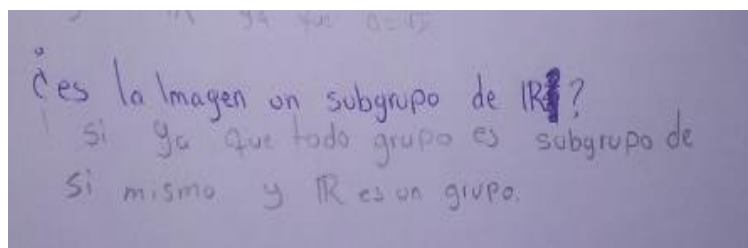 IR ya que a=√2
¿es la Imagen un subgrupo de IR?
Si ya que todo grupo es subgrupo de
Si mismo y IR es un grupo.